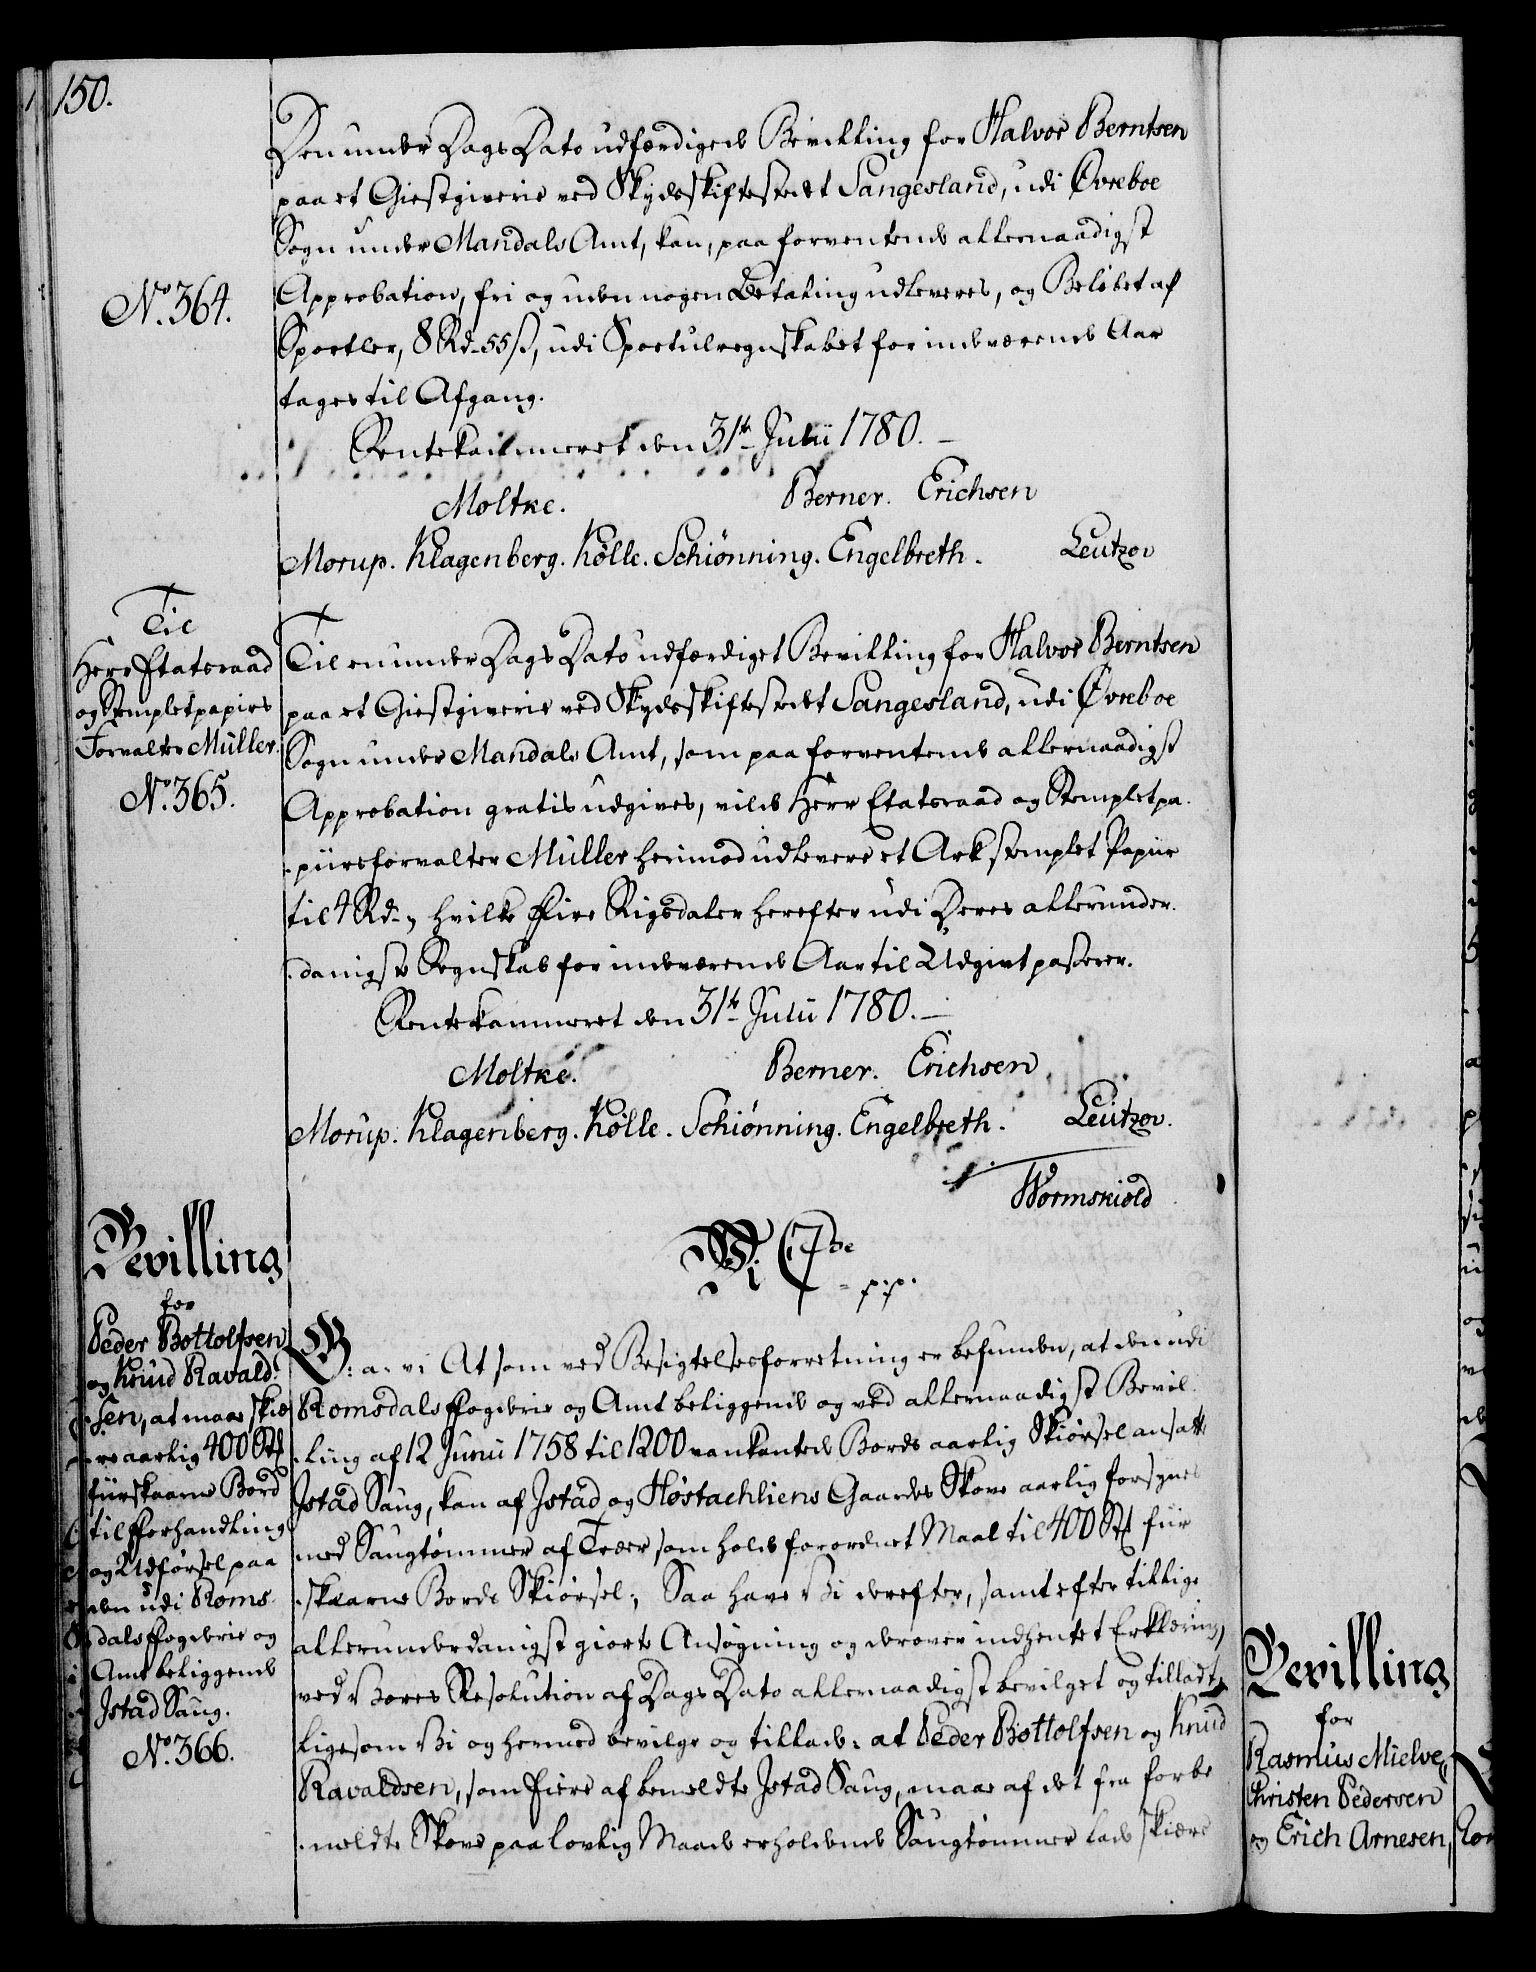 150.
Den under Dags Dato udfærdigede Bevilling for Halvor Berntsen
paa et Giestgiverie ved Skydsskiftestedet Sangesland, udi Øvreboe
Sogn under Mandals Amt, kan, paa forventende allernaadigst
No. 364.
Approbation, fri og uden nogen Betaling udleveres, og Beløbet af
Sportler, 8 Rd. 55 ß, udi Sportulregnskabet for indværende Aar
tages til Afgang.
Rentekammeret den 31te Julii 1780. —
Moltke. Berner. Erichsen
Morup. Klagenberg. Kølle. Schiønning. Engelbreth. Leutzov
Til
Herr Etatsraad
og Stempletpapiirs
Forvalter Müller.
No. 365.
Til en under Dags Dato udfærdiget Bevilling for Halvor Berntsen
paa et Giestgiverie ved Skydsskiftestedet Sangesland, udi Øvreboe
Sogn under Mandals Amt, som paa forventende allernaadigst
Approbation gratis udgives, vilde Herr Etatsraad og Stempletpa-
-piirsforvalter Müller herimod udlevere et Ark stemplet Papiir
til 4 Rd., hvilke Fire Rigsdaler herefter udi Deres allerunder-
-danigste Regnskab for indværende Aar til Udgivt passerer.
Rentekammeret den 31te Julii 1780. —
Moltke. Berner. Erichsen
Morup. Klagenberg. Kølle. Schiønning. Engelbreth. Leutzov.
Wormskiold
Bevilling
for
Peder Bottolfsen
og Knud Ravald-
-sen, at maae skiæ-
-re aarlig 400 Stk
fiirskaarne Bord
til Forhandling
og Udførsel paa
den udi Roms-
dals Fogderie og
Amt beliggende
Istad Saug.
No. 366.
Vi C 7de
p. p.
G. a. v: At som ved Besigtelsesforretning er befunden, at den udi
Romsdals Fogderie og Amt beliggende og ved allernaadigst Bevil-
-ling af 12 Junii 1758 til 1200 vankantede Bords aarlig Skiørsel ansatte
Istad Saug, kan af Istad og Høstachliens Gaardes Skove aarlig forsynes
med Saugtømmer af Træer som holde forordnet Maal til 400 Stk fiir-
-skaarne Bords Skiørsel; Saa have Vi derefter, samt efter tillige
allerunderdanigst giorte Ansøgning og derover indhentet Erklæring,
ved Vores Resolution af Dags Dato allernaadigst bevilget og tilladt,
ligesom Vi og hermed bevilge og tillade: at Peder Bottolfsen og Knud
Ravaldsen, som Eiere af bemeldte Istad Saug, maae af det fra forbe-
-meldte Skove paa lovlig Maade erholdende Saugtømmer lade skiære
Bevilling
for
Rasmus Mielve,
Christen Pedersen
og Erich Arnesen,